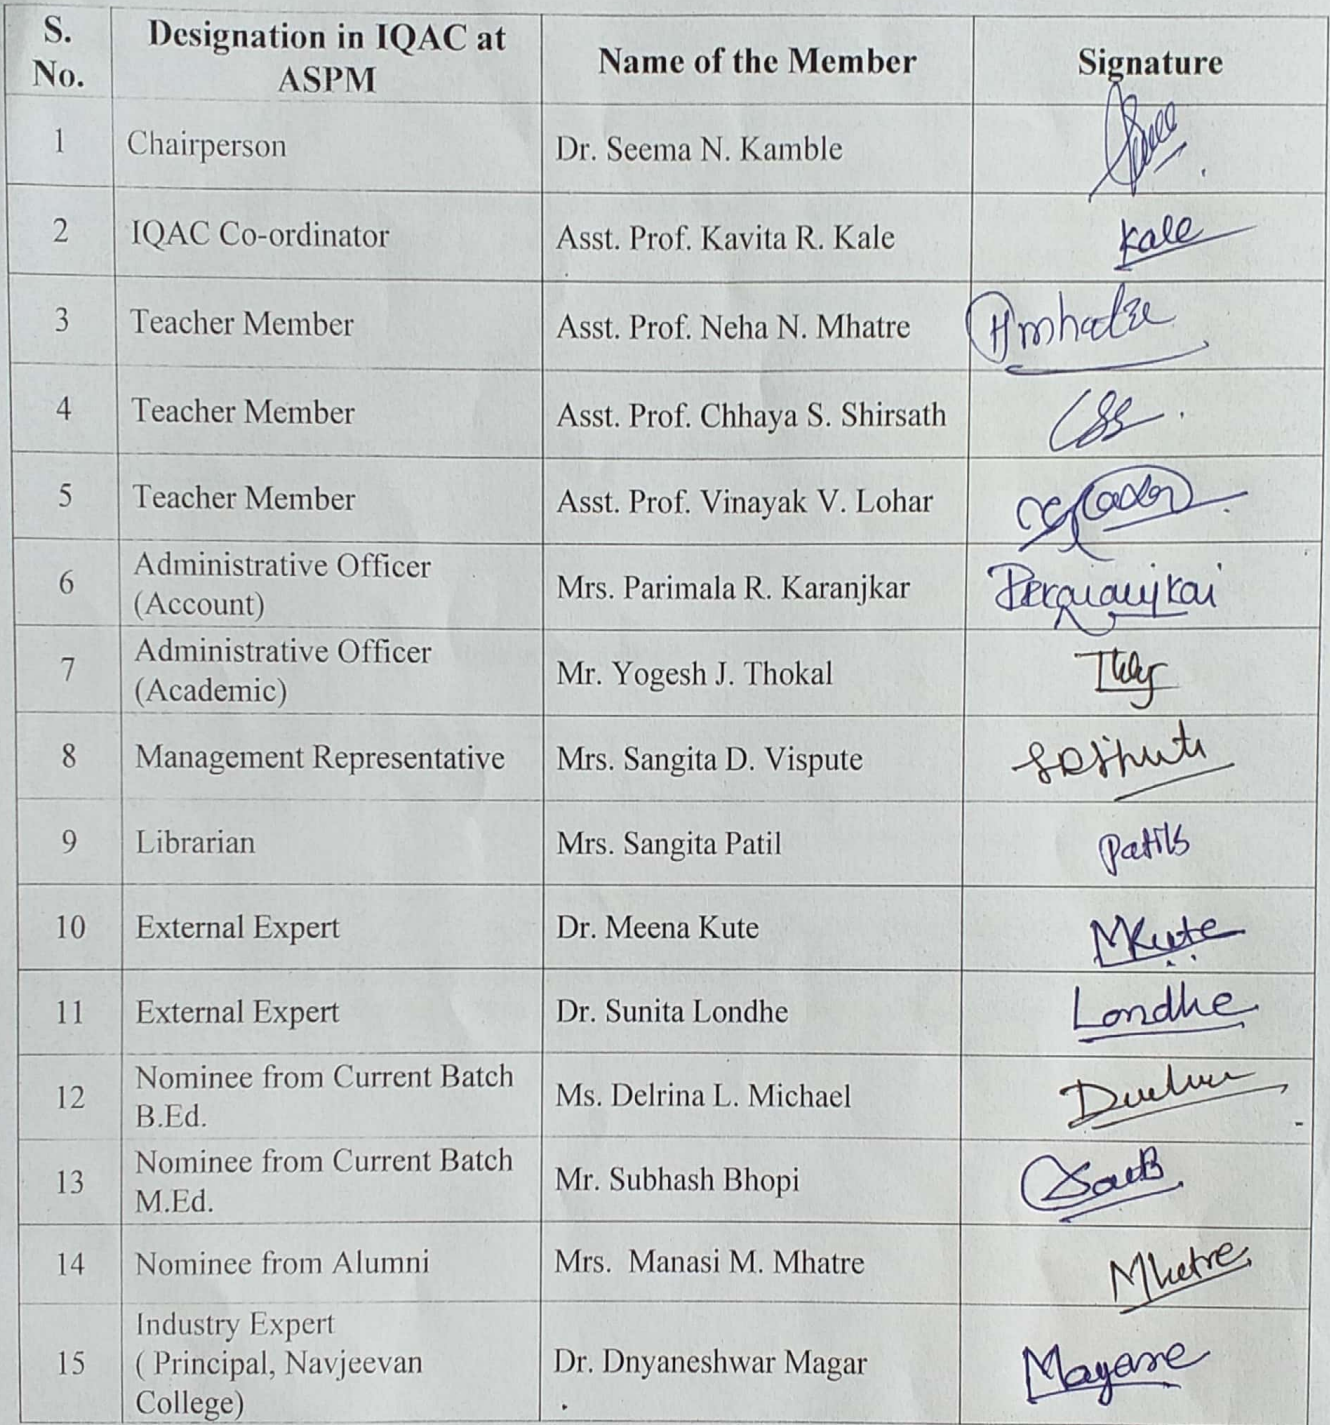 S. No. Designation in IQAC at ASPM Name of the Member Signature
1 Chairperson Dr. Seema N. Kamble
2 IQAC Co-ordinator Asst. Prof. Kavita R. Kale Kale
3 Teacher Member Asst. Prof. Neha N. Mhatre
4 Teacher Member Asst. Prof. Chhaya S. Shirsath
5 Teacher Member Asst. Prof. Vinayak V. Lohar
6 Administrative Officer (Account) Mrs. Parimala R. Karanjkar
7 Administrative Officer (Academic) Mr. Yogesh J. Thokal
8 Management Representative Mrs. Sangita D. Vispute
9 Librarian Mrs. Sangita Patil
10 External Expert Dr. Meena Kute MKute
11 External Expert Dr. Sunita Londhe Londhe
12 Nominee from Current Batch B.Ed. Ms. Delrina L. Michael
13 Nominee from Current Batch M.Ed. Mr. Subhash Bhopi
14 Nominee from Alumni Mrs. Manasi M. Mhatre
15 Industry Expert ( Principal, Navjeevan College) Dr. Dnyaneshwar Magar